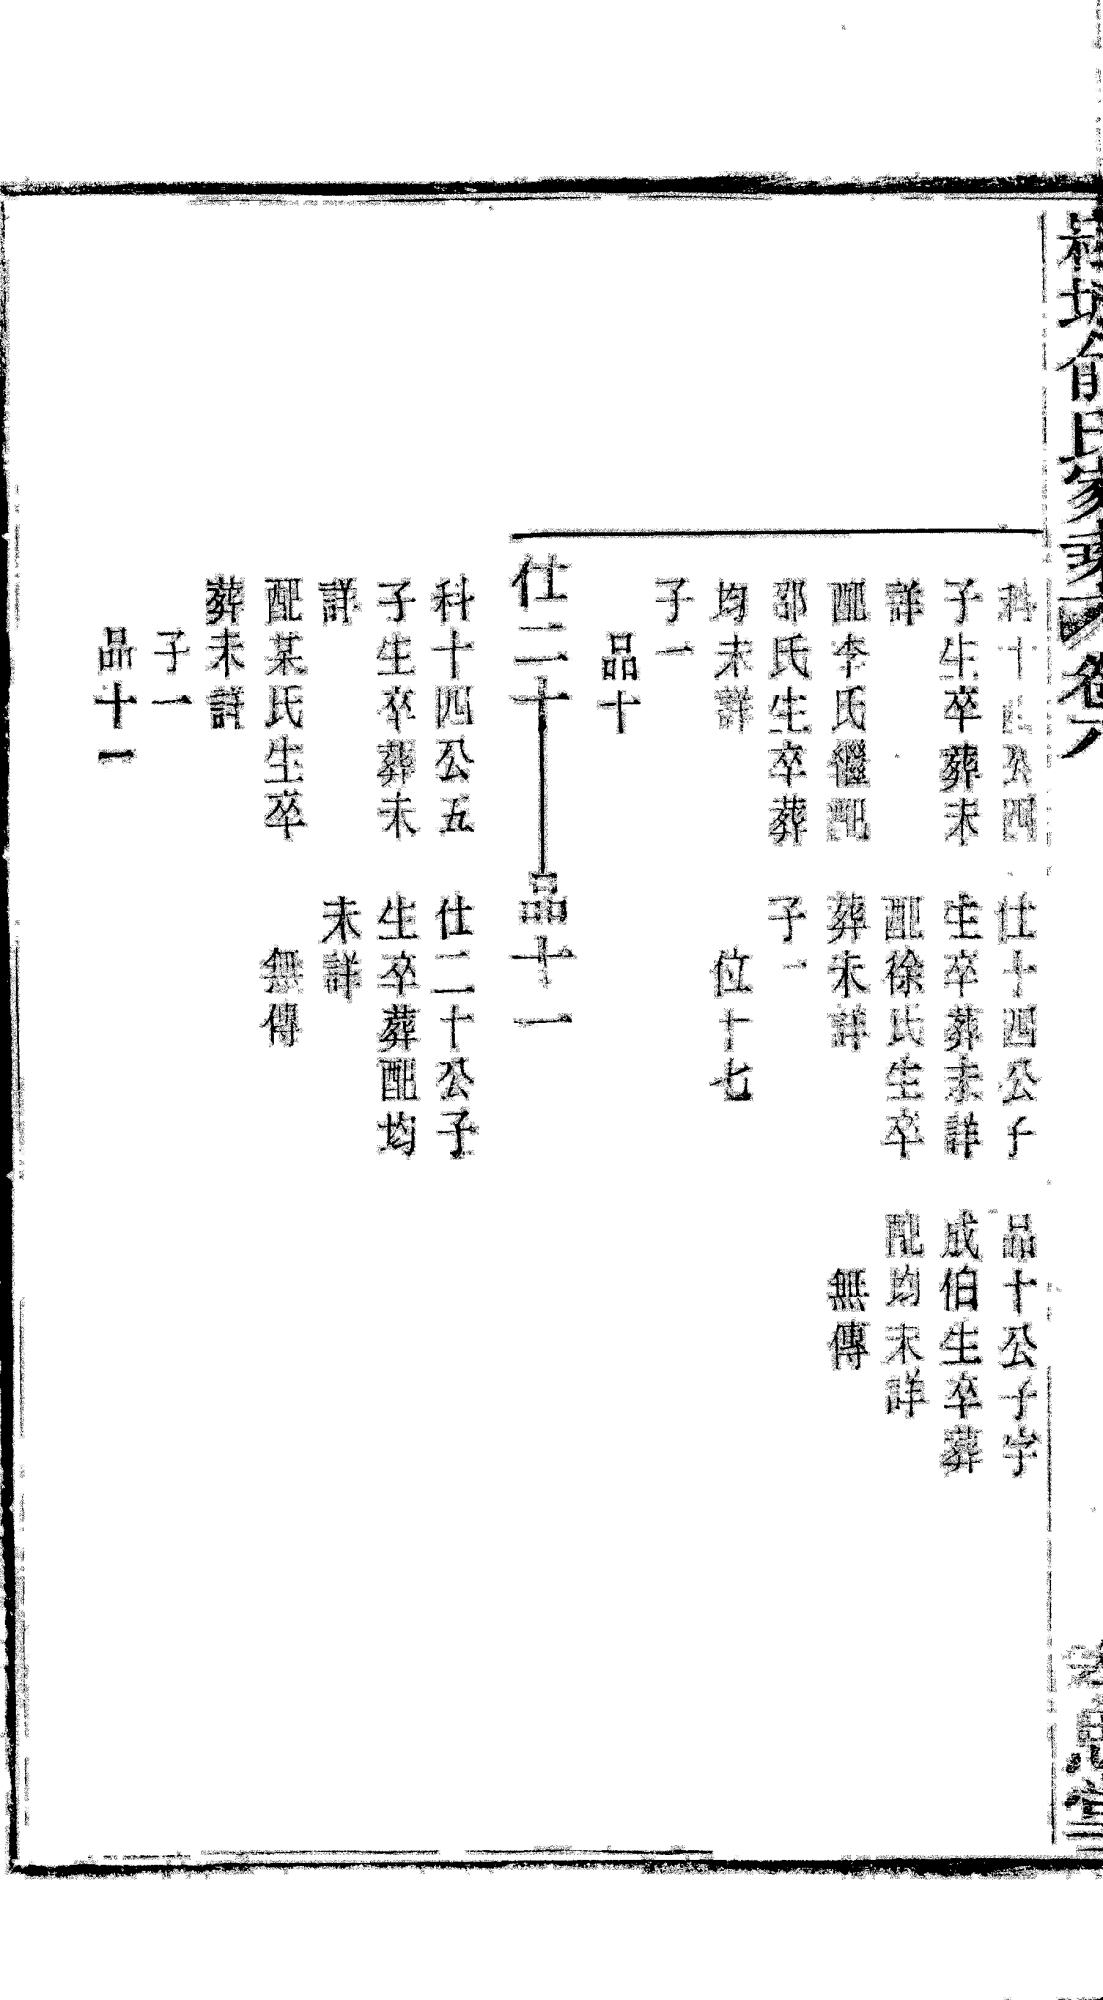 俞氏家乘
卷八
思堂
科十四公四
子生卒葬未
詳
配李氏繼配
邵氏生卒葬
均未詳
子一
品十
仕十四公子
生卒葬未詳
配徐氏生卒
葬未詳
子一
位十七
品十公子字
成伯生卒葬
配均未詳
無傳
仕二十
品十一
科十四公五
子生卒葬未
詳
配某氏生卒
葬未詳
子一
品十一
仕二十公子
生卒葬配均
未詳
無傳